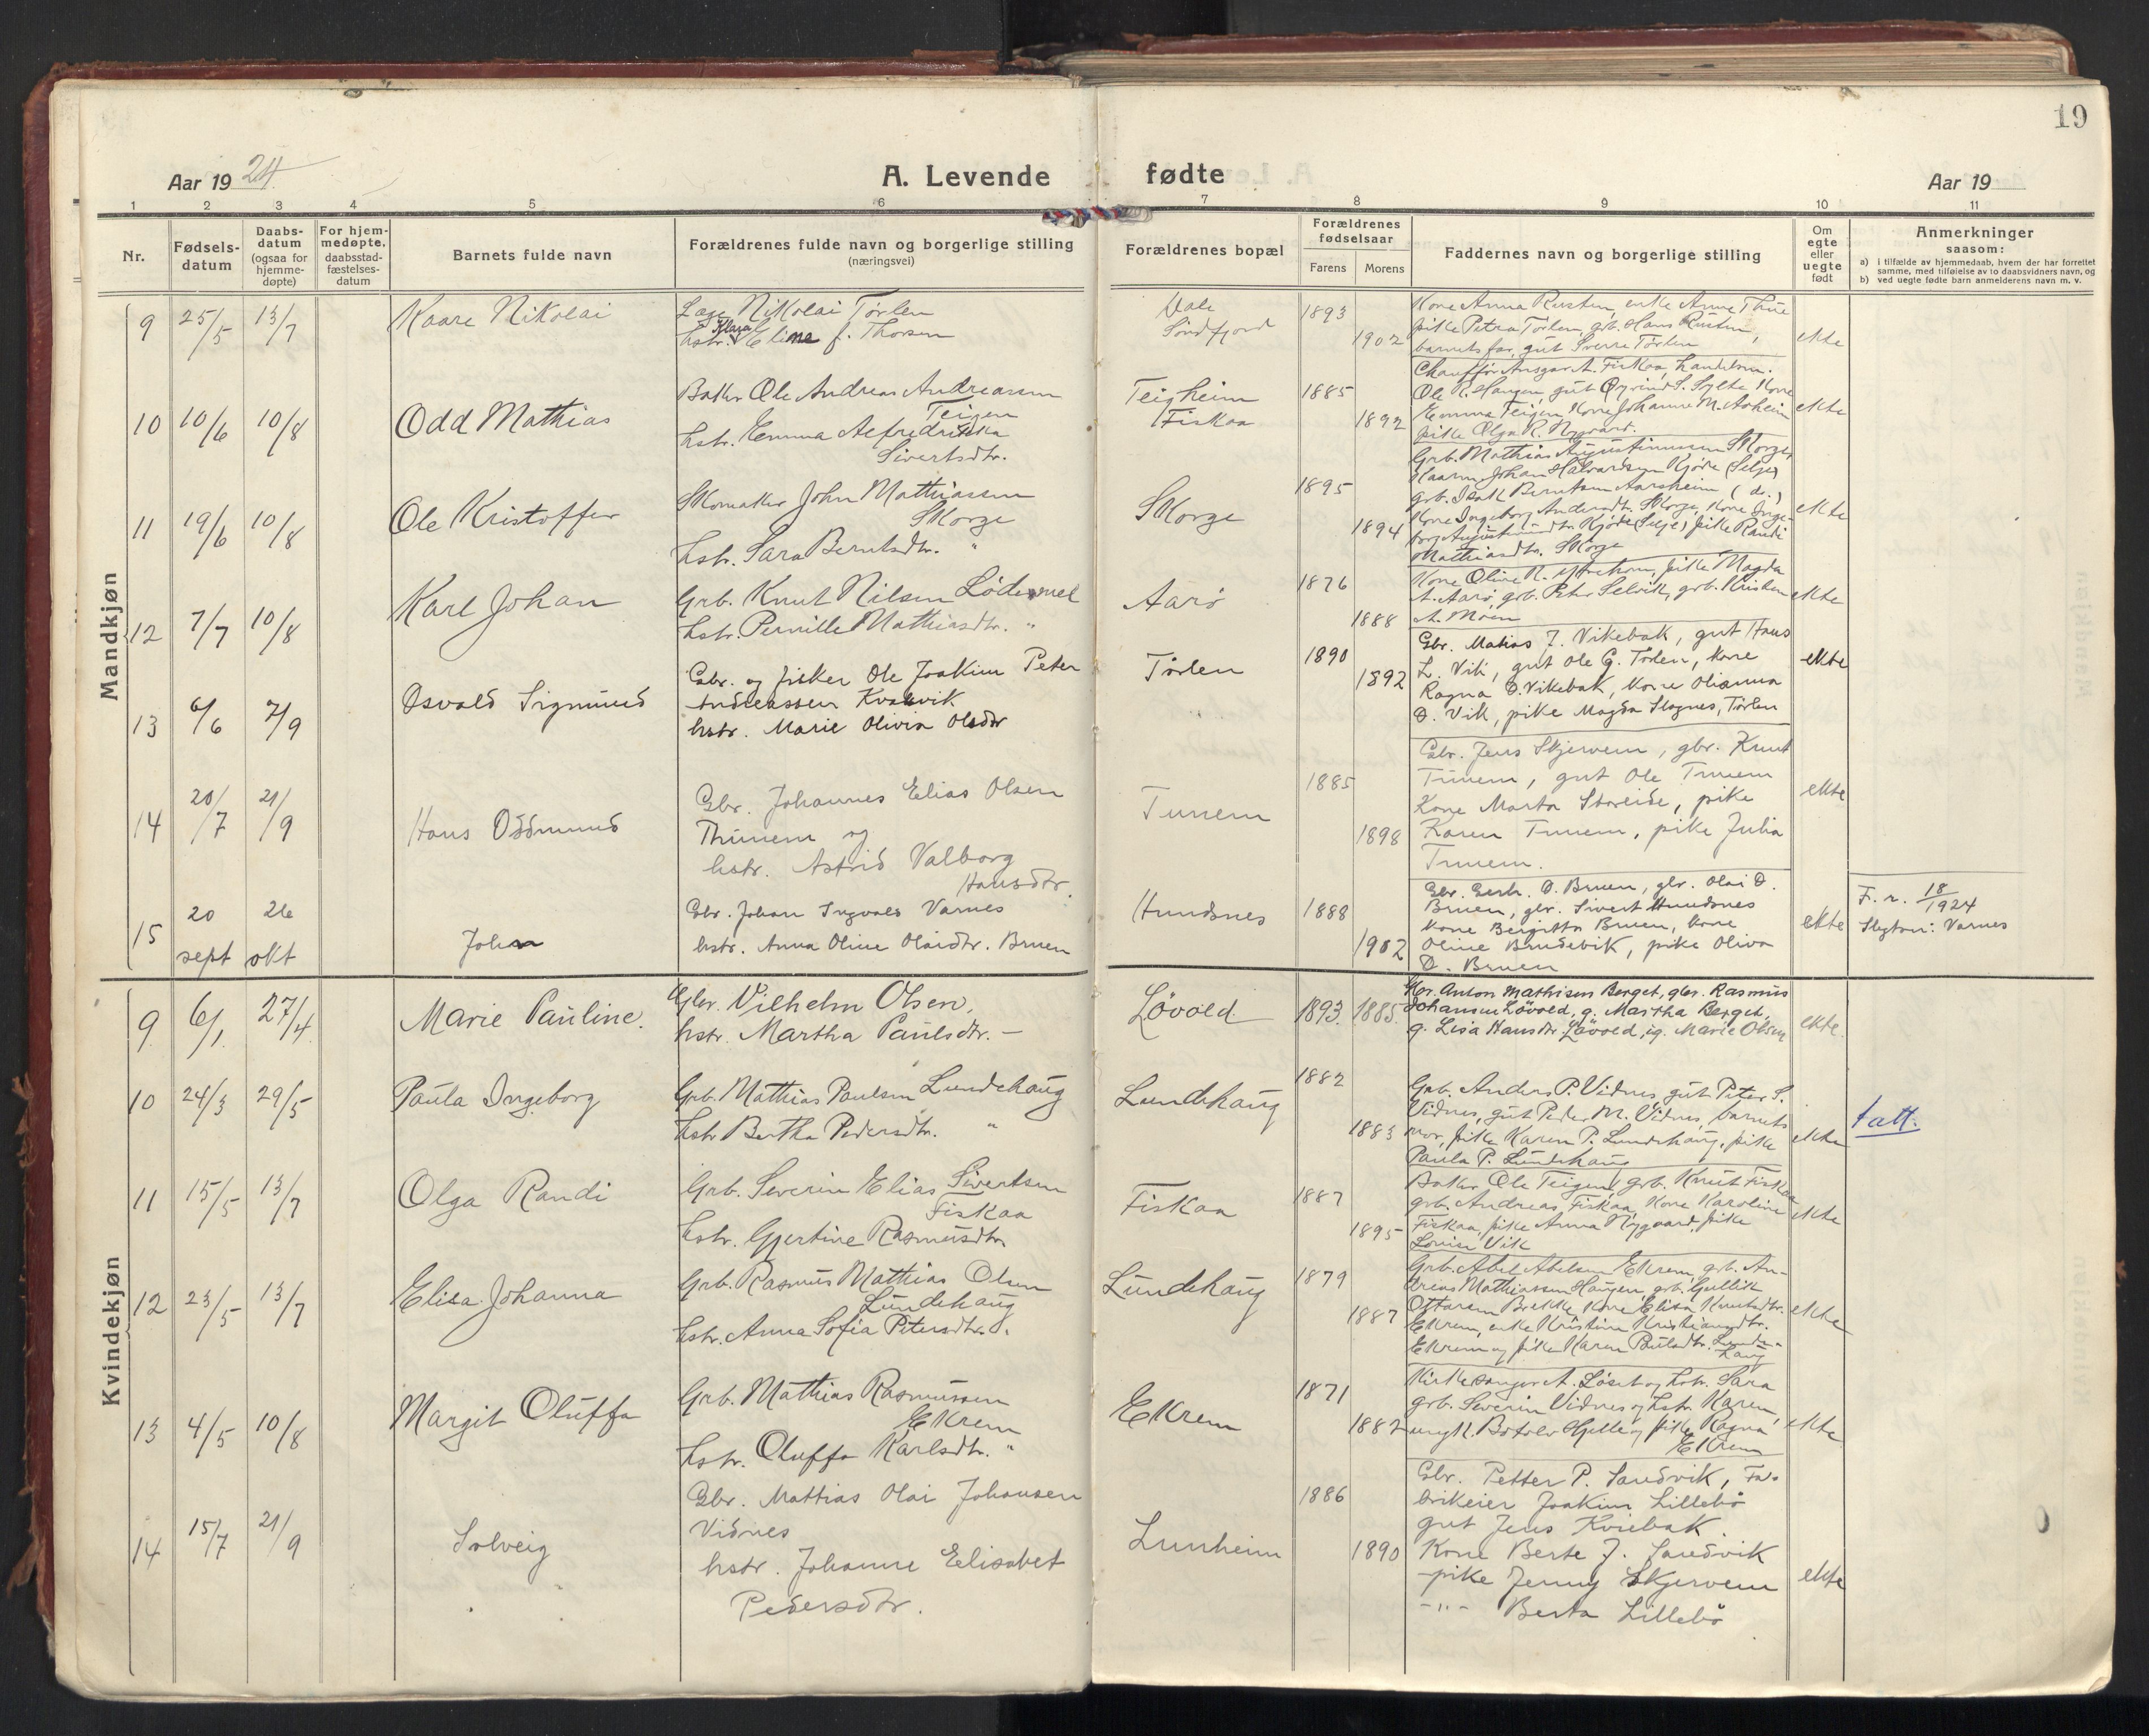 19
Aar 1924
A. Levende fødte
Aar 19
1 2 3 4 5 6 7 8 9 10 11
Nr.
Fødsels-
datum
Daabs-
datum
(ogsaa for
hjemme-
døpte)
For hjem-
medøpte,
daabsstad-
fæstelses-
datum
Barnets fulde navn
Forældrenes fulde navn og borgerlige stilling
(næringsvei)
Forældrenes bopæl
Forældrenes
fødselsaar
Farens Morens
Faddernes navn og borgerlige stilling
Om
egte
eller
uegte
født
Anmerkninger
saasom:
a) i tilfælde av hjemmedaab, hvem der har forrettet
samme, med tilføielse av to daabsvidners navn, og
b) ved uegte fødte barn anmelderens navn m. v.
Mandkjøn
9 25/5 13/7 Kaare Nikolai
Læge Nikolai Tørlen
hstr. Klara Eline f. Thorsen
Dale
Søndfjord
1893 1902
Kone Anna Rusten, enke Anne Thue
pike Petra Tørlen, grb. Hans Rusten,
barnets far, gut Sverre Tørlen
ekte
10 10/6 10/8 Odd Mathias
Baker Ole Andreas Andreassen
Teigen
hstr. Emma Alfredrikka
Sivertsdtr.
Teigheim
Fiskaa
1885 1892
Chauffør Ansgar A. Fiskaa, handelsm.
Ole R. Haugen, gut Øyvind S. Sylte Kone
Emma Teigen, Kone Johanne M. Aaheim
pike Olga R. Nygaard.
ekte
11 19/6 10/8 Ole Kristoffer
Skomaker John Mathiassen
Skorge
hstr. Sara Berntsdtr. "
Skorge
1895 1894
Grb. Mathias Augustinussen Skorge,
Johan Halvardsen Kjøde (Selje)
grb. Isak Berntsen Aarsheim (do.)
Kone Ingeborg Andersdtr. Skorge, Kone Inge-
borg Augustinusdtr. Kjøde (Selje) pike Randi
Mathiasdtr. Skorge
ekte
12 7/7 10/8 Karl Johan
Grb. Knut Nilsen Lødemel
hstr. Pernille Mathiasdtr. "
Aarø
1876 1888
Kone Oline R. Ytrehorn, pike Magda
A. Aarø, grb. Peter Selvik, grb. Kristen
A. Moen
ekte
13 6/6 7/9 Osvald Sigmund
Gbr. og fisker Ole Joakim Peter
Andreassen Kvalsvik
hstr. Marie Olivia Olsdtr
Tørlen
1890 1892
Gbr. Matias J. Vikebak, gut Hans
L. Vik, gut Ole G. Tørlen, kone
Ragna O. Vikebak, kone Olianna
O. Vik, pike Magda Slagnes, Tørlen
ekte
14 20/7 21/9 Hans Oddmund
Gbr. Johannes Elias Olsen
Thunem og
hstr. Astrid Valborg
Hansdtr.
Tunem
1885 1898
Gbr. Jens Skjervem, gbr. Knut
Tunem, gut Ole Tunem
Kone Marta Storeide, pike
Karen Tunem, pike Julia
Tunem.
ekte
15 20 sept 26 okt John
Gbr. Johan Ingvald Varnes
hstr. Anna Oline Olaidtr. Bruen
Hundsnes
1888 1902
Gbr. Gerh. O. Bruen, gbr. Olai O.
Bruen, gbr. Sivert Hundsnes
kone Bergitta Bruen, kone
Oline Brudevik, pike Oliva
O. Bruen
ekte
F. r. 18/1924
Slegtsn: Varnes
Kvindekjøn
9 6/1 27/4 Marie Pauline.
Gbr. Vilhelm Olsen,
hstr. Martha Paulsdtr. –
Løvold
1893. 1885.
Gbr. Anton Mathisen Berget, gbr. Rasmus
Johansen Løvold, g. Martha Berget,
g. Lisa Hansdtr. Løvold, ig. Marie Olsen
ekte.
10 24/3 29/5 Paula Ingeborg
Grb. Mathias Paulsen Lundehaug
hstr Bertha Pedersdtr. "
Lundehaug
1882 1883
Grb. Anders P. Vidnes, gut Peter S.
Vidnes, gut Peder M. Vidnes, barnets
mor, pike Karen P. Lundehaug, pike
Paula P. Lundehaug
ekte
t att.
11 15/5 13/7 Olga Randi
Grb. Severin Elias Sivertsen
Fiskaa
hstr. Gjertine Rasmusdtr.
Fiskaa
1887 1895
Baker Ole Teigen, grb. Knut Fiskaa
grb. Andreas Fiskaa, Kone Karoline
Fiskaa, pike Anna Nygaard, pike
Lovise Vik
ekte
12 23/5 13/7 Elisa Johanna
Grb. Rasmus Mathias Olsen
Lundehaug
hstr. Anna Sofia Petersdtr. "
Lundehaug
1879 1887
Grb. Abel Abelsen Ekrem, grb. An-
dreas Mathiassen Haugen, grb. Gullik
Ottarsen Brekke, Kone Elisa Knutsdtr.
Ekrem, enke Kristine Kristiansdtr.
Ekrem og pike Karen Paulsdtr. Lunde-
haug
ekte
13 4/5 10/8 Margit Oluffa
Grb. Mathias Rasmussen
Ekrem
hstr. Oluffa Karlsdtr. "
Ekrem
1871 1882
Kirkesanger A. Løset og hstr. Sara
grb. Severin Vidnes og hstr. Karen,
ungk. Botolv Hjelle og pike Ragna
Ekrem
ekte
14 15/7 21/9 Solveig
Gbr. Mattias Olai Johansen
Vidnes
hstr. Johanne Elisabet
Pedersdtr.
Lunheim
1886 1890
Gbr. Petter P. Sandvik, Fa-
brikeier Joakim Lillebø
gut Jens Kviebak.
Kone Berte J. Sandvik
-pike Jenny Skjervem
-"- Berta Lillebø
ekte